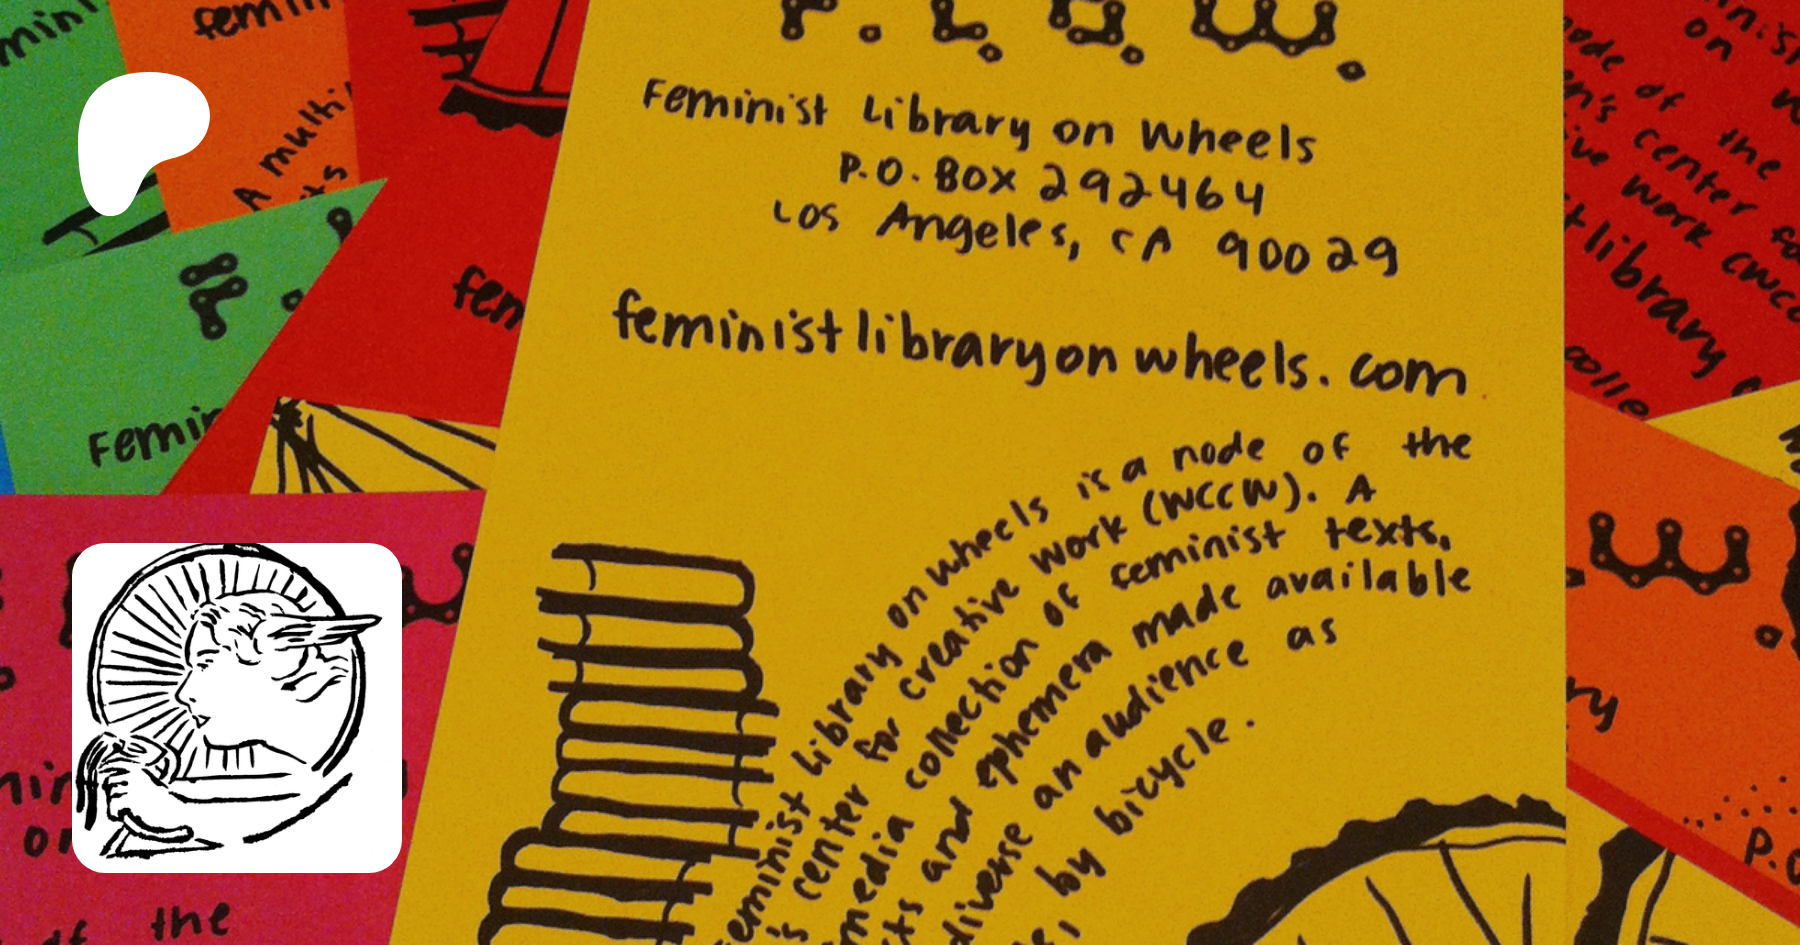 F.L.O.W.
Feminist Library on Wheels
P.O. Box 292464
Los Angeles, CA 90029
feministlibraryonwheels.com
Feminist Library on wheels is a node of the
's center for creative work (WCCW). A
media collection of feminist texts,
ts and ephemera made available
diverse an audience as
, by bicycle.
femin
A multi
Femin
fem
on
node of the
en's center fo
ive work (WCC
t library
colle
P.O
of the
on